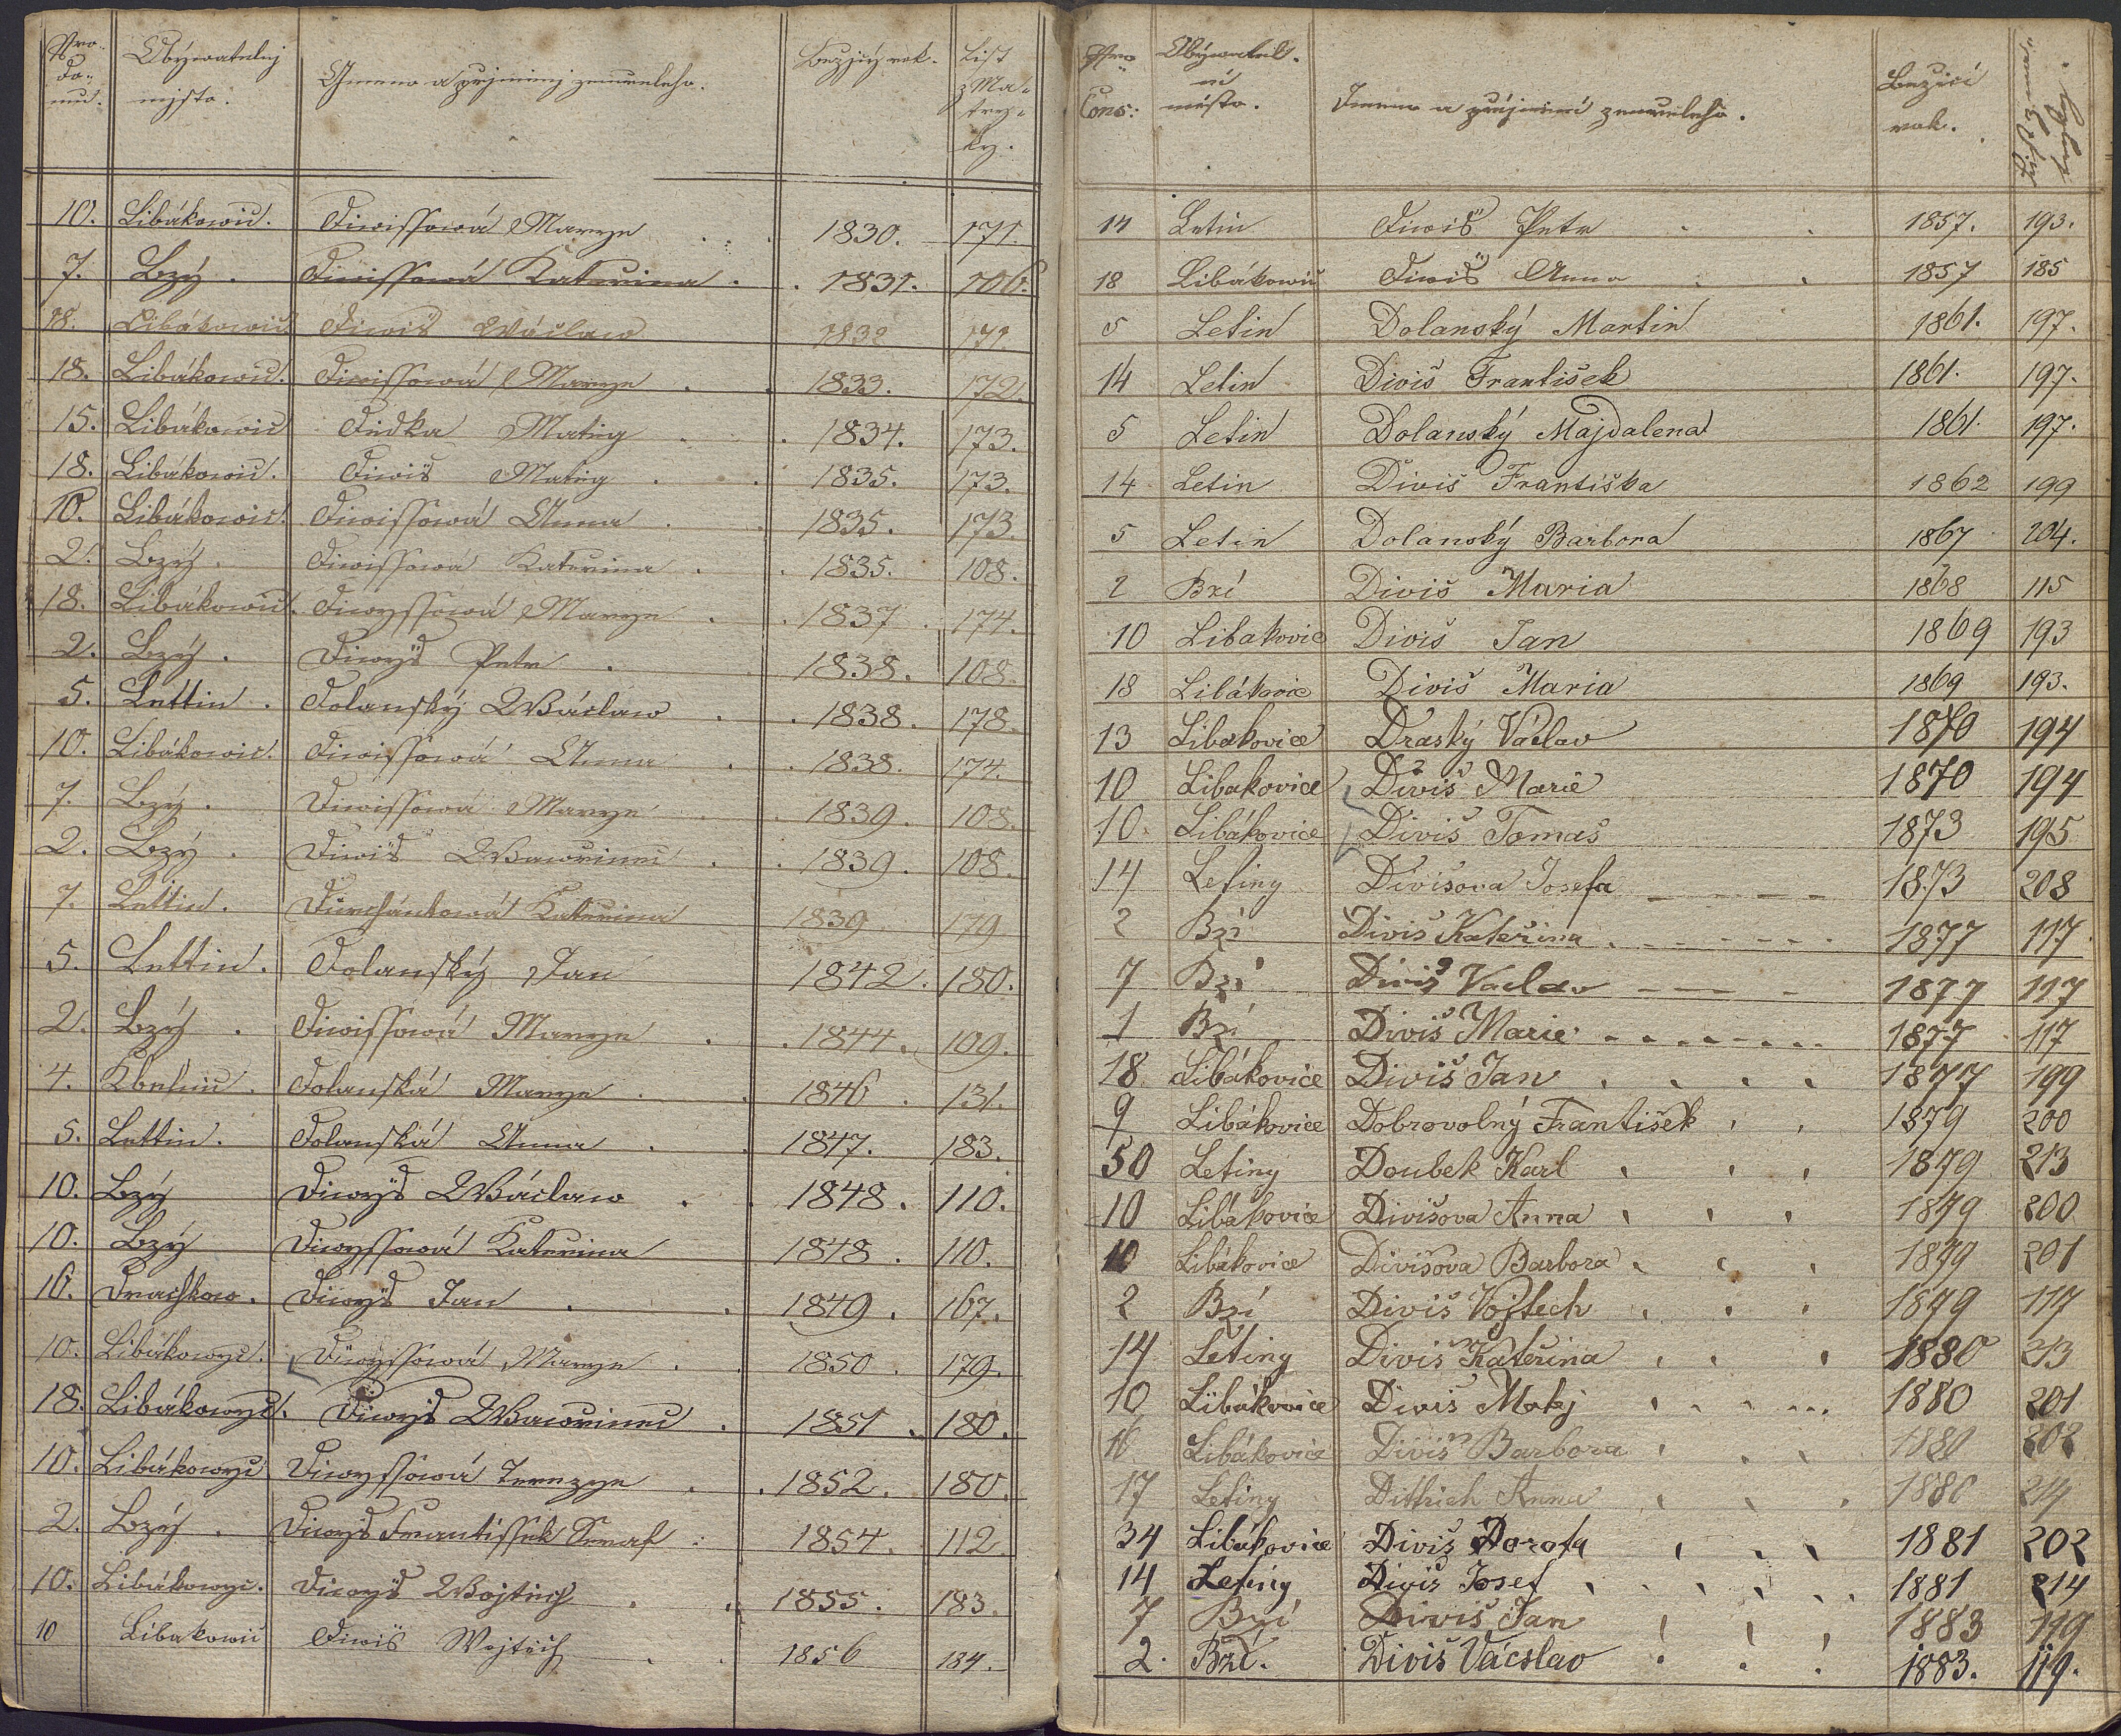 Nro. do= mu. Obýwatelný mjsto. Gmeno a pržjmenj zemreleho. Bežjcý rok. List z Ma= try= ky.
10. Libákowic. Diwissowá Marye 1830. 171.
7. Bzý. Diwissowá Kateržina 1831. 106.
18. Libákowic Diwiš Wáclaw 1832 171.
18. Libákowic. Diwissowá Marye 1833. 172.
15. Libákowic Matieg 1834. 173.
18. Libákowic. Diwiš Matieg 1835. 173.
10. Libákowic. Diwissowá Anna 1835. 173.
2. Bzý. Diwissowá Kateržina 1835. 108.
18. Libákowic. Diwyssowá Marye 1837. 174.
2. Bzý. Diwyš Petr 1838. 108.
5. Lettin. Dolanský Wáclaw 1838. 178.
10. Libákowic. Diwissowá Anna 1838. 174.
7. Bzý. Diwissowá Marye 1839. 108.
2. Bzý. Diwiš Wawřinec 1839. 108.
7. Lettin. Kateržina 1839 179
5. Lettin. Dolanský Jan 1842. 180.
2. Bzý. Diwissowá Marye 1844. 109.
4. Dolanská Marye 1846. 131.
5. Lettin. Dolanská Anna 1847. 183.
10. Bzý Diwyš Wáclaw 1848. 110.
10. Bzý Diwyssowá Kateržina 1848. 110.
16. Drachkow. Diwyš Jan 1849. 167.
10. Libákowyc. Diwyssowá Marye 1850. 179.
18. Libákowyc. Diwyš Wawřinec 1851. 180.
10. Libákowyc Diwyssowá Terezye 1852. 180.
2. Bzý. Diwyš Frantissek Seraf: 1854. 112.
10. Libákowyc. Diwyš Wojtiech 1855. 183.
10 Libakowic Diwiš Wojtěch 1856 184.
Nro Cons: Obývatel= ní město. Jmeno a příjmení zemřelého. Bežící rok.
14 Letin Diwiš Petr 1857. 193.
18 Libákowic Diwiš Anna 1857 185
5 Letin Dolanský Martin 1861. 197.
14 Letin Diviš František 1861. 197.
5 Letin Dolanský Majdalena 1861. 197.
14 Letin Diviš Františka 1862 199
5 Letin Dolanský Barbora 1867 204.
2 Bzí Diviš Maria 1868 115
10 Libakovic Diviš Jan 1869 193
18 Libákovic Diviš Maria 1869 193.
13 Libakovice Draský Václav 1870 194
10 Libakovice Diviš Marie 1870 194
10. Libákovice Diviš Tomaš 1873 195
14 Letiny Divišova Josefa 1873 208
2 Bzí Diviš Kateřina 1877 117
7 Bzí Diviš Vaclav 1877 117
1 Bzí Diviš Marie 1877 117
18 Libákovice Diviš Jan 1877 199
9 Libákovice Dobrovolný František 1879 200
50 Letiny Doubek Karl 1879 213
10 Libákovice Divišova Anna 1879 200
10 Libákovice Divišova Barbora 1879 201
2 Bzí Diviš Vojtech 1879 117
14 Letiny Diviš Kateřina 1880 213
10 Libákovice Diviš Matěj 1880 201
16 Libákovice Diviš Barbora 1880 202
17 Letiny Dittrich Anna 1880 214
34 Libákovice Diviš Dorota 1881 202
14 Letiny Diviš Josef 1881 214
7 Bzí Diviš Jan 1883 119
2. Bzí. Diviš Václav 1883. 119.